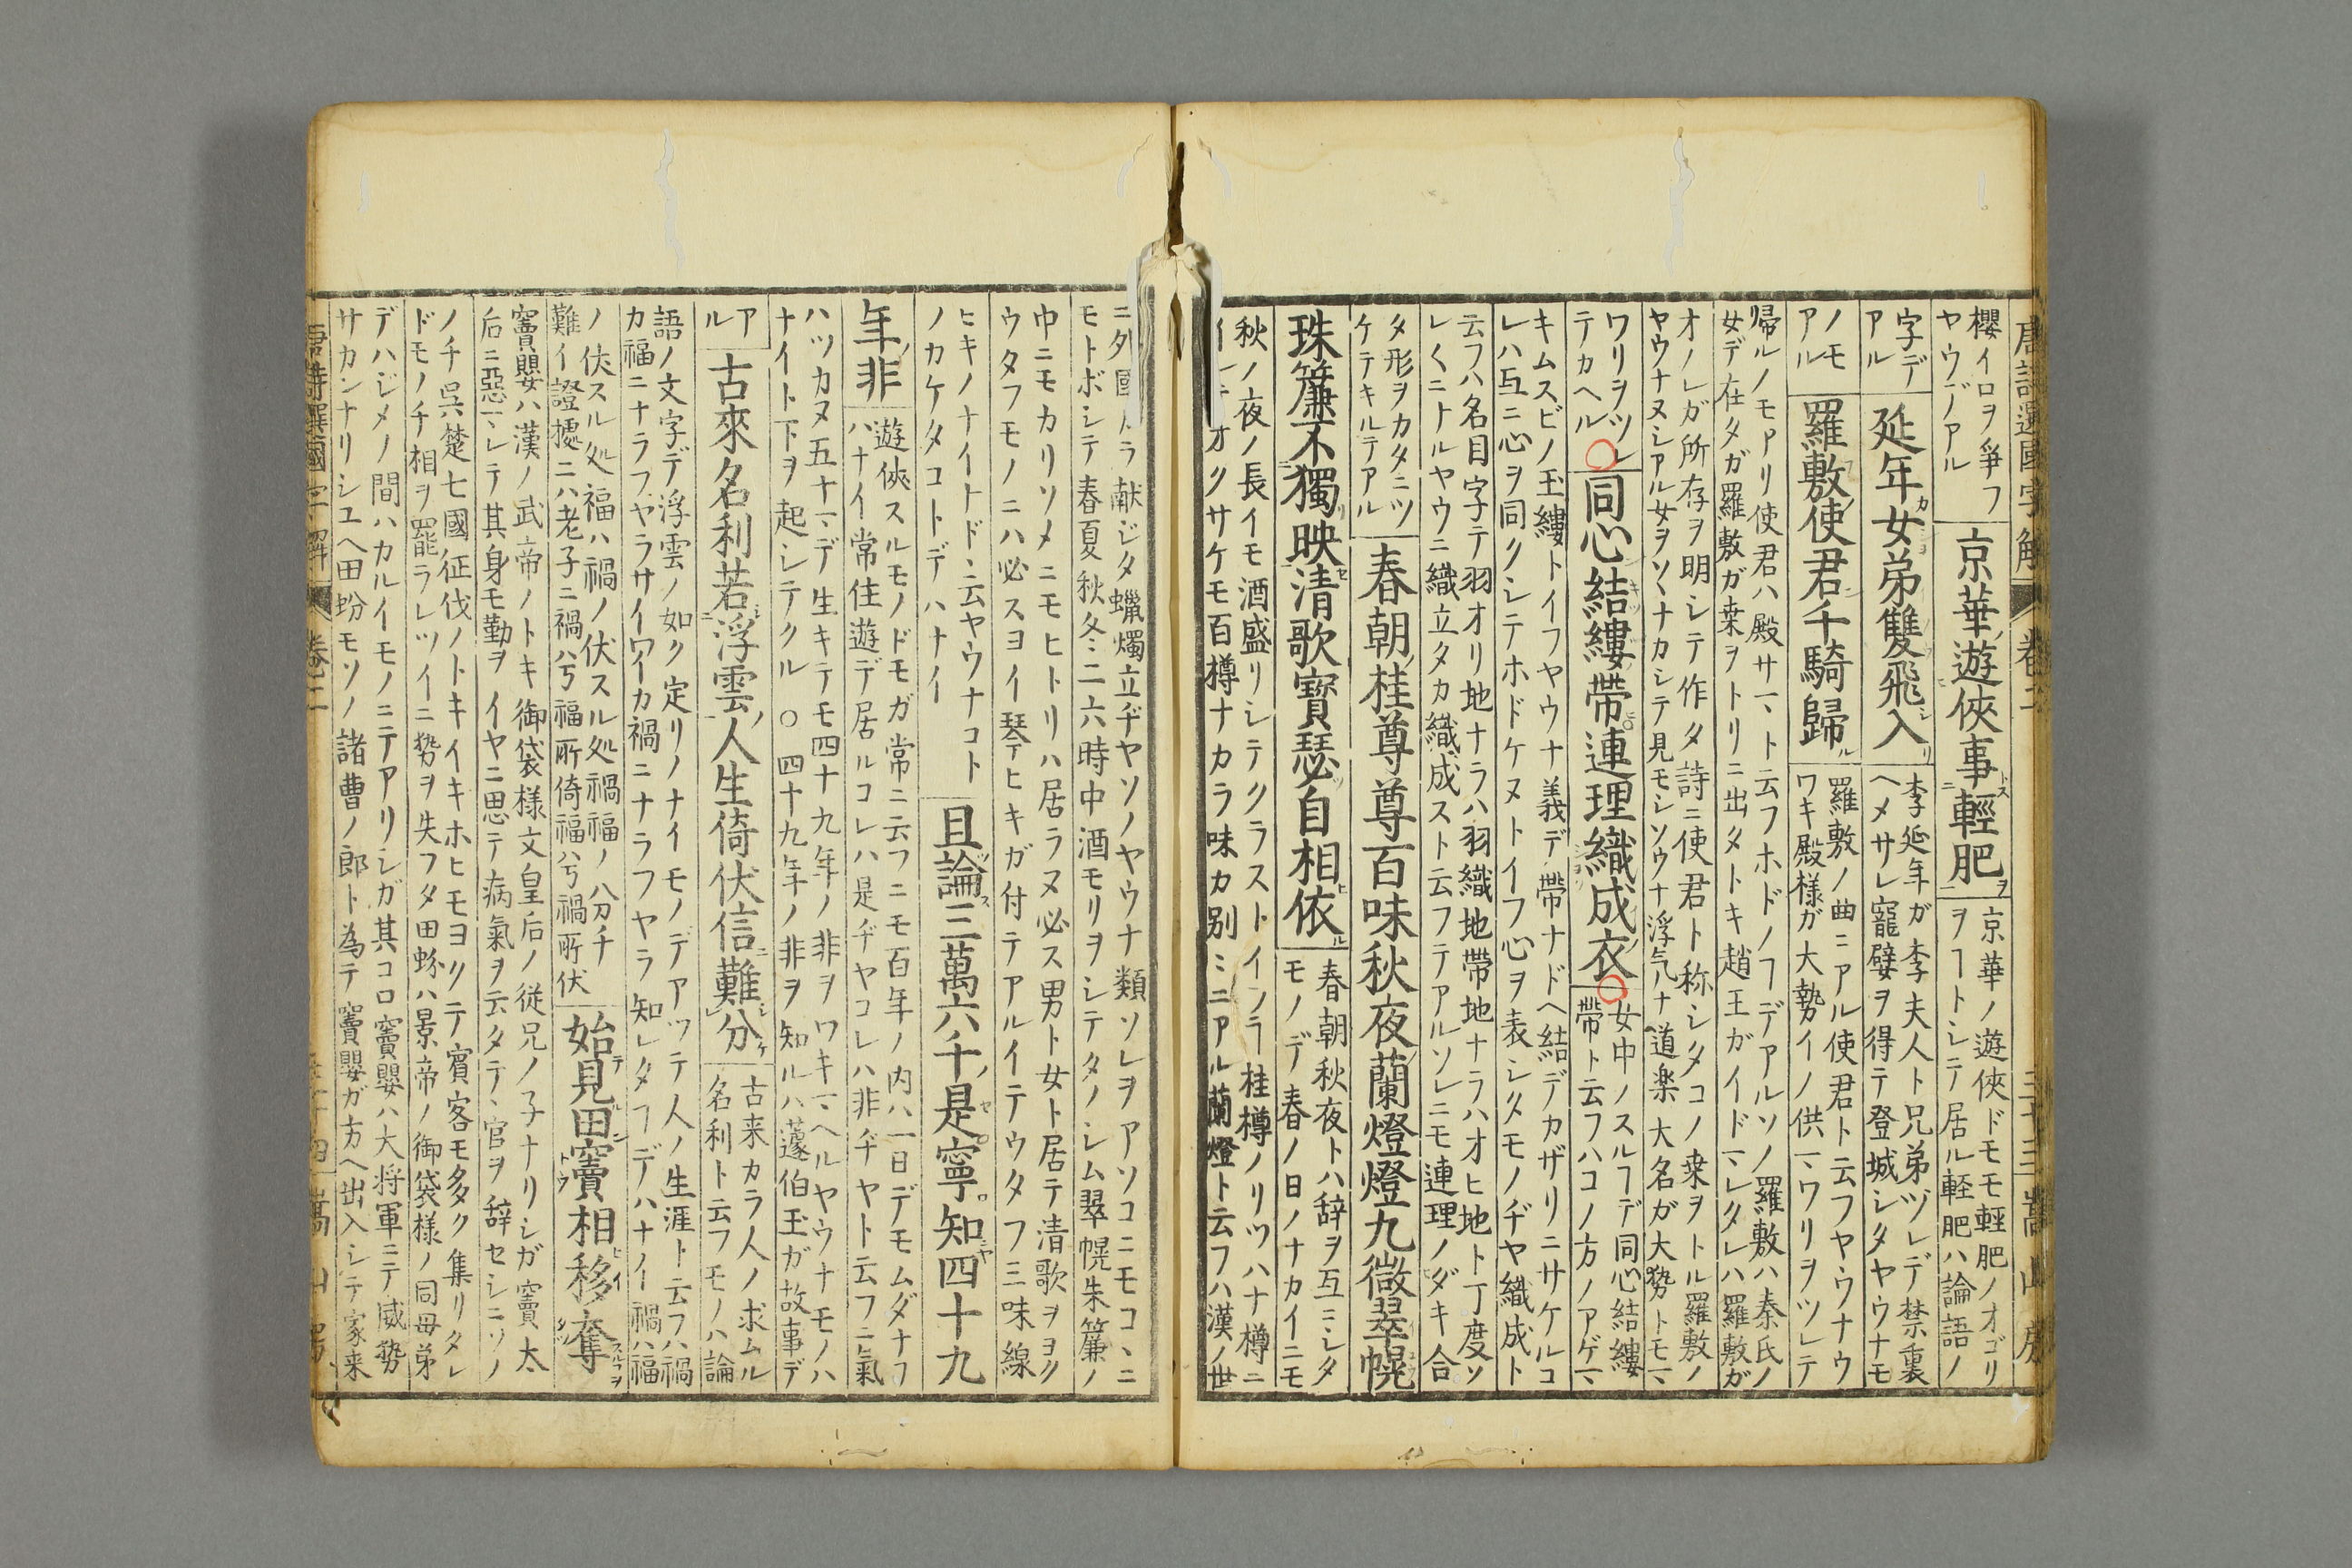 唐詩選國字解 卷二 嵩山房
櫻イロヲ爭フ
ヤウデアル
京華遊俠事輕肥
京華ノ遊俠ドモモ輕肥ノオゴリ
ヲヿトシテ居ル軽肥ハ論語ノ
字デ
アル
延年女弟雙飛入
李延年ガ李夫人ト兄弟ヅレデ禁裏
ヘメサレ寵嬖ヲ得テ登城シタヤウナモ
ノモ
アル
羅敷使君千騎歸
羅敷ノ曲ニアル使君ト云フヤウナウ
ワキ殿様ガ大勢イノ供マワリヲツレテ
帰ルノモアリ使君ハ殿サマト云フホドノヿデアルソノ羅敷ハ秦氏ノ
女デ在タガ羅敷ガ桒ヲトリニ出タトキ趙王ガイドマレタレハ羅敷ガ
オノレガ所存ヲ明シテ作タ詩ニ使君ト称シタコノ桒ヲトル羅敷ノ
ヤウナヌシアル女ヲソヽナカシテ見モシソウナ浮気ナ道楽大名ガ大勢トモマ
ワリヲツレ
テカヘル
同心結縷帶連理織成衣
女中ノスルヿデ同心結縷
帶ト云フハコノ方ノアゲマ
キムスビノ玉縷トイフヤウナ義デ帶ナドヘ結デカザリニサケルコ
レハ互ニ心ヲ同クシテホドケヌトイフ心ヲ表シタモノヂヤ織成ト
云フハ名目字テ羽オリ地ナラハ羽織地帶地ナラハオヒ地ト丁度ソ
レ〱ニナルヤウニ織立タカ織成スト云フテアルソレニモ連理ノダキ合
タ形ヲカタニツ
ケテキルテアル
春朝桂尊尊百味秋夜蘭燈燈九微翠幌
珠簾不獨映清歌寶瑟自相依
春朝秋夜トハ辞ヲ互ニシタ
モノデ春ノ日ノナカイニモ
秋ノ夜ノ長イモ酒盛リシテクラストイフヿ桂樽ノリツハナ樽ニ
オクサケモ百樽ナカラ味カ别ミニアル蘭燈ト云フハ漢ノ世
献ジタ蠟燭立ヂヤソノヤウナ類ソレヲアソコニモコヽニ
モトボシテ春夏秋冬二六時中酒モリヲシテタノシム翠幌朱簾ノ
中ニモカリソメニモヒトリハ居ラヌ必ス男ト女ト居テ清歌ヲヨク
ウタフモノニハ必スヨイ琴ヒキガ付テアルイテウタフ三味線
ヒキノナイナドヽ云ヤウナコト
ノカケタコトデハナイ
且論三萬六千是寧知四十九
年非
遊俠スルモノドモガ常ニ云フニモ百年ノ内ハ一日デモムダナフ
ハナイ常住遊デ居ルコレハ是ヂヤコレハ非ヂヤト云フニ氣
ハツカヌ五十マデ生キテモ四十九年ノ非ヲワキマヘルヤウナモノハ
ナイト下ヲ起シテクル〇四十九年ノ非ヲ知ルハ蘧伯玉ガ故事デ
ア
ル
古來名利若浮雲人生倚伏信難分
古来カラ人ノ求ムル
名利ト云フモノハ論
語ノ文字デ浮雲ノ如ク定リノナイモノデアツテ人ノ生涯ト云フハ禍
カ福ニナラフヤラサイワイカ禍ニナラフヤラ知レタヿデハナイ禍ハ福
ノ伏スル処福ハ禍ノ伏スル処禍福ノ分チ
難イ證據ニハ老子ニ禍ハ兮福所倚福ハ兮禍所伏
始見田竇相移奪
竇嬰ハ漢ノ武帝ノトキ御袋様文皇后ノ従兄ノ子ナリシガ竇太
后ニ惡マレテ其身モ勤ヲイヤニ思テ病氣ヲ云タテヽ官ヲ辞セシニソノ
ノチ呉楚七國征伐ノトキイキホヒモヨクテ賓客モ多ク集リタレ
ドモノチ相ヲ罷ラレツイニ勢ヲ失フタ田蚡ハ景帝ノ御袋様ノ同母弟
デハジメノ間ハカルイモノニテアリシガ其コロ竇嬰ハ大将軍ニテ威勢
サカンナリシユヘ田蚡モソノ諸曹ノ郎ト為テ竇嬰ガ方ヘ出入シテ家来
唐詩選國字解 卷二